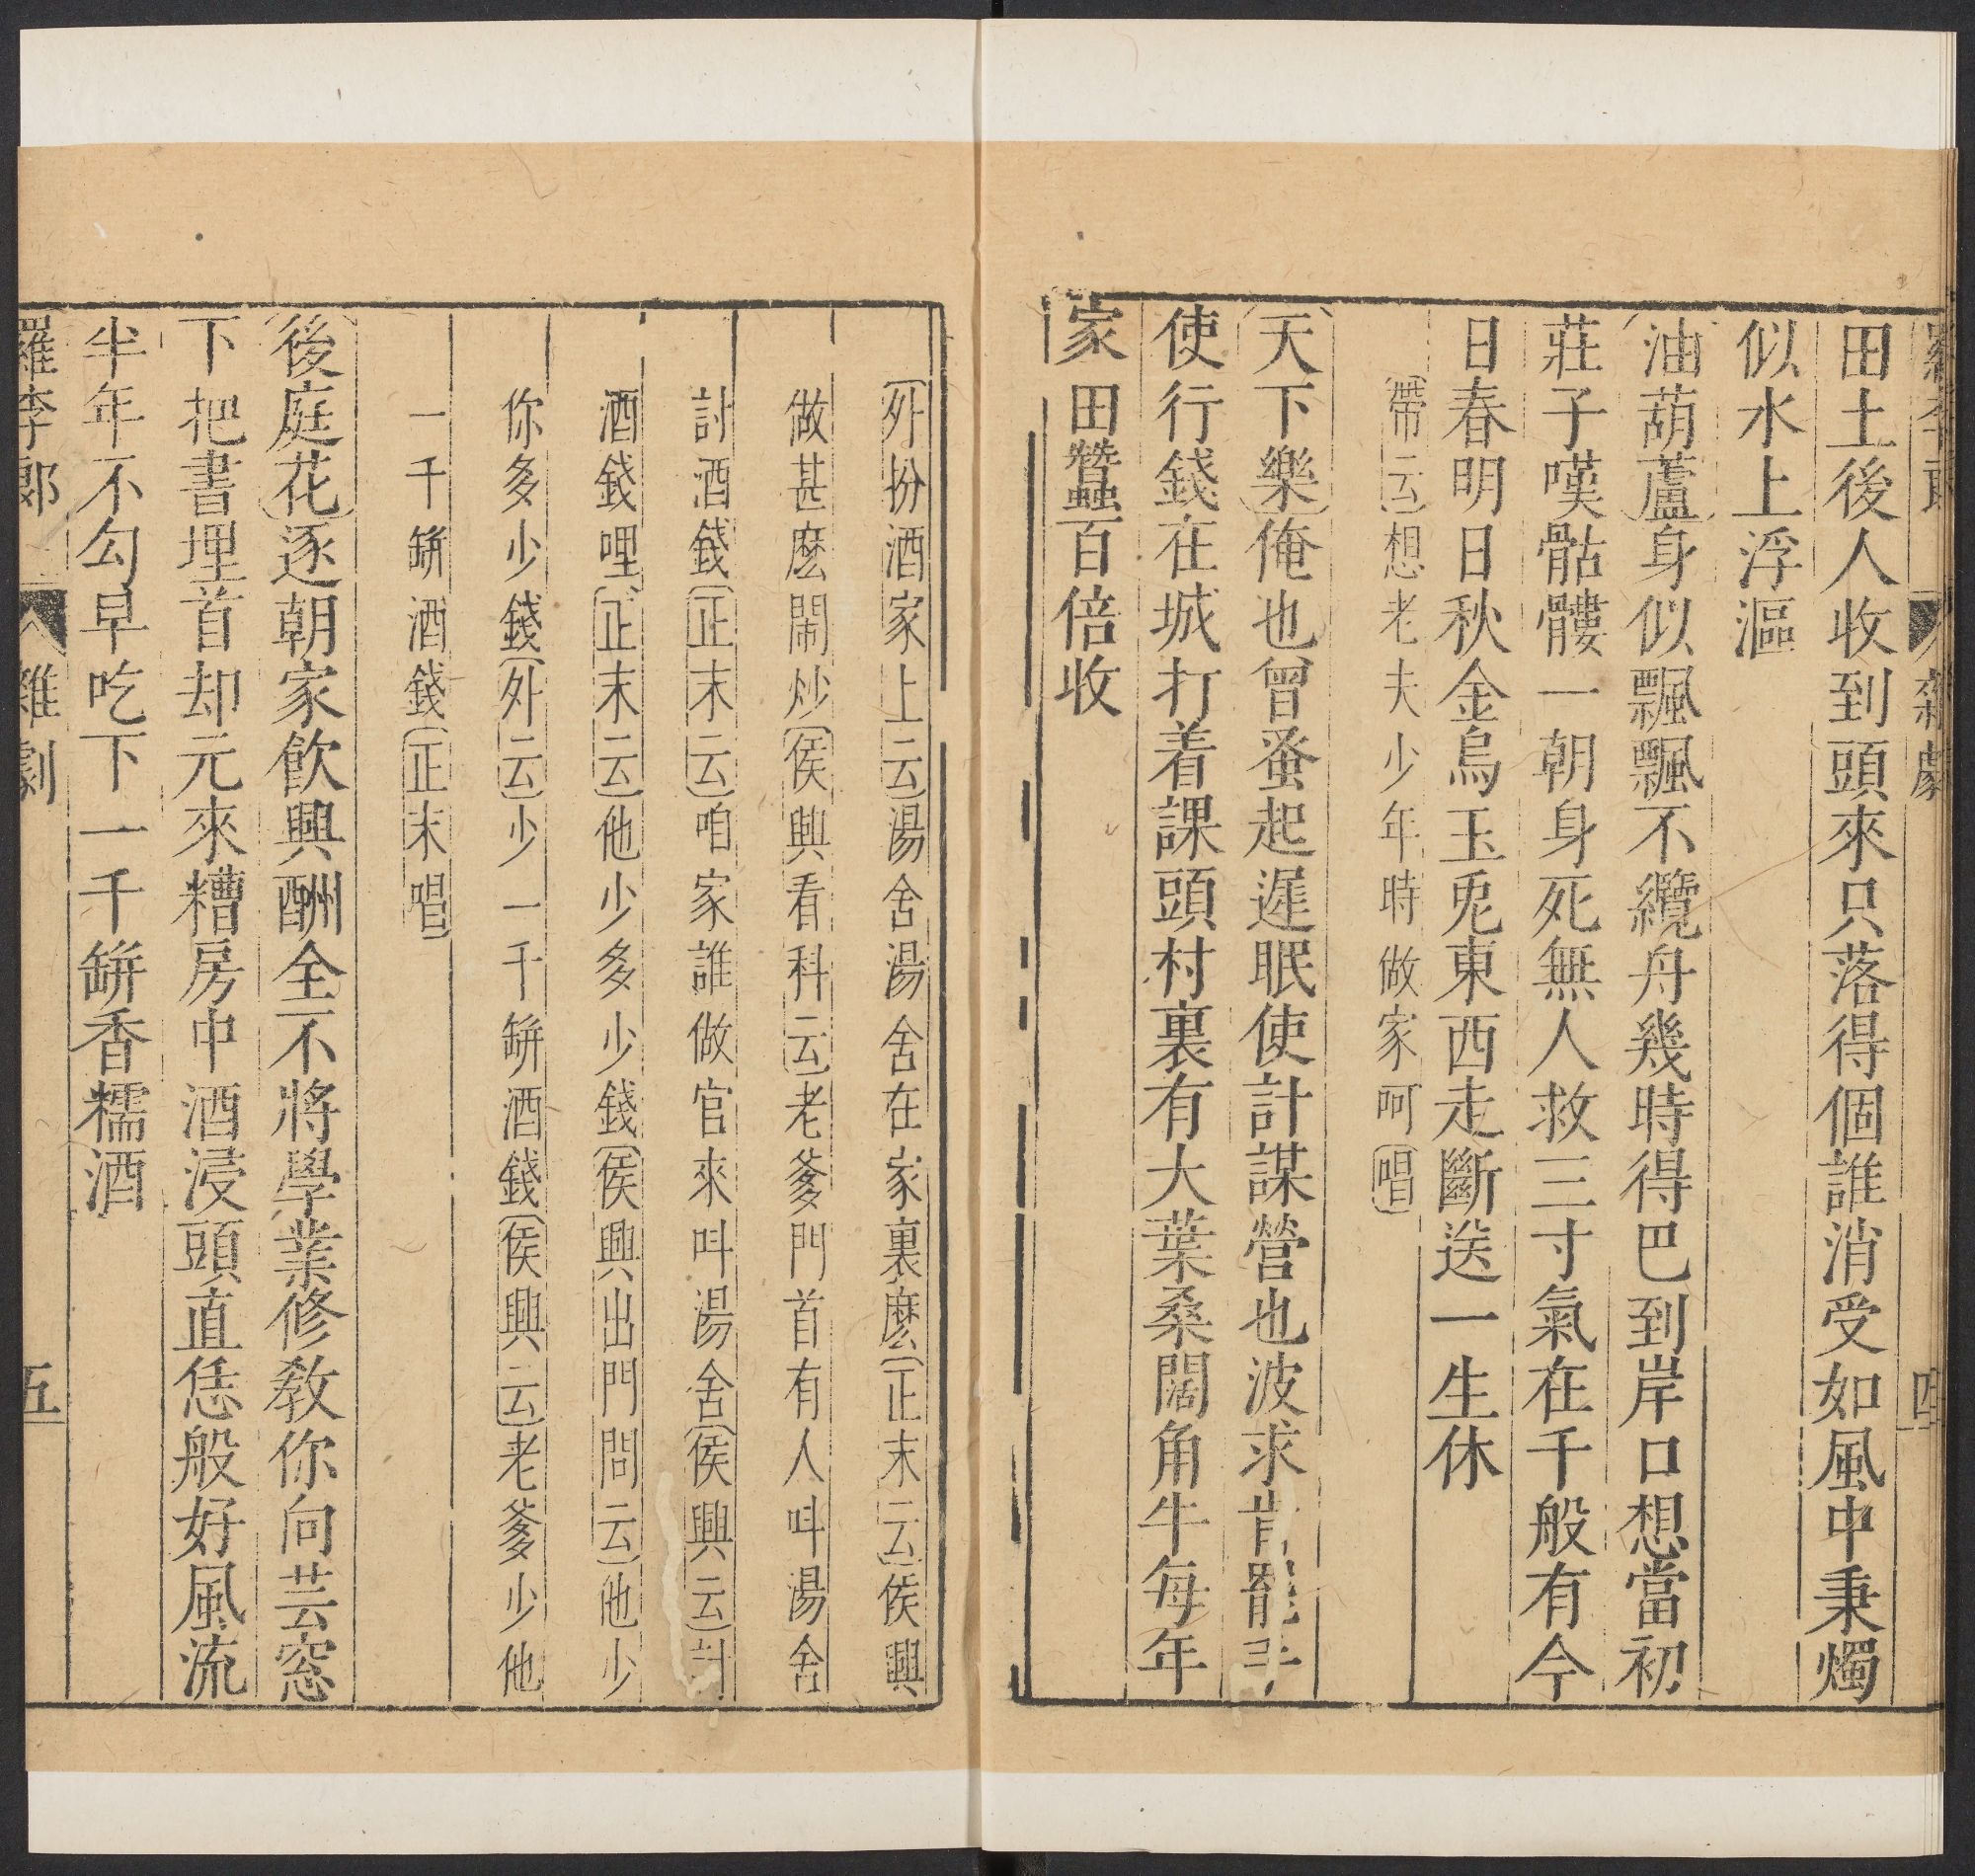 雜劇
四
田土後人收到頭來只落得個誰消受如風中秉燭
似水上浮漚
油葫蘆身似飄飄不纜舟幾時得巴到岸口想當初
莊子嘆骷髏一朝身死無人救三寸氣在千般有今
日春明日秋金烏玉兎東西走斷送一生休
帶云想老夫少年時做家呵唱
天下樂俺也曾蚤起遲眠使計謀營也波求肯罷手
使行錢在城打着課頭村裏有大葉桑闊角牛每年
家田蠶百倍收
外扮酒家上云湯舍湯舍在家裏麽正末云侯興
做甚麽鬧炒侯興看科云老爹門首有人叫湯舍
討酒錢正末云咱家誰做官來叫湯舍侯興云討
酒錢哩正末云他少多少錢侯興出門問云他少
你多少錢外云少一千缾酒錢侯興云老爹少他
一千缾酒錢正末唱
後庭花逐朝家飲興酬全不將學業修教你向芸窓
下把書埋首却元來糟房中酒浸頭直恁般好風流
半年不勾早吃下一千缾香糯酒
羅李郎
雜劇
五